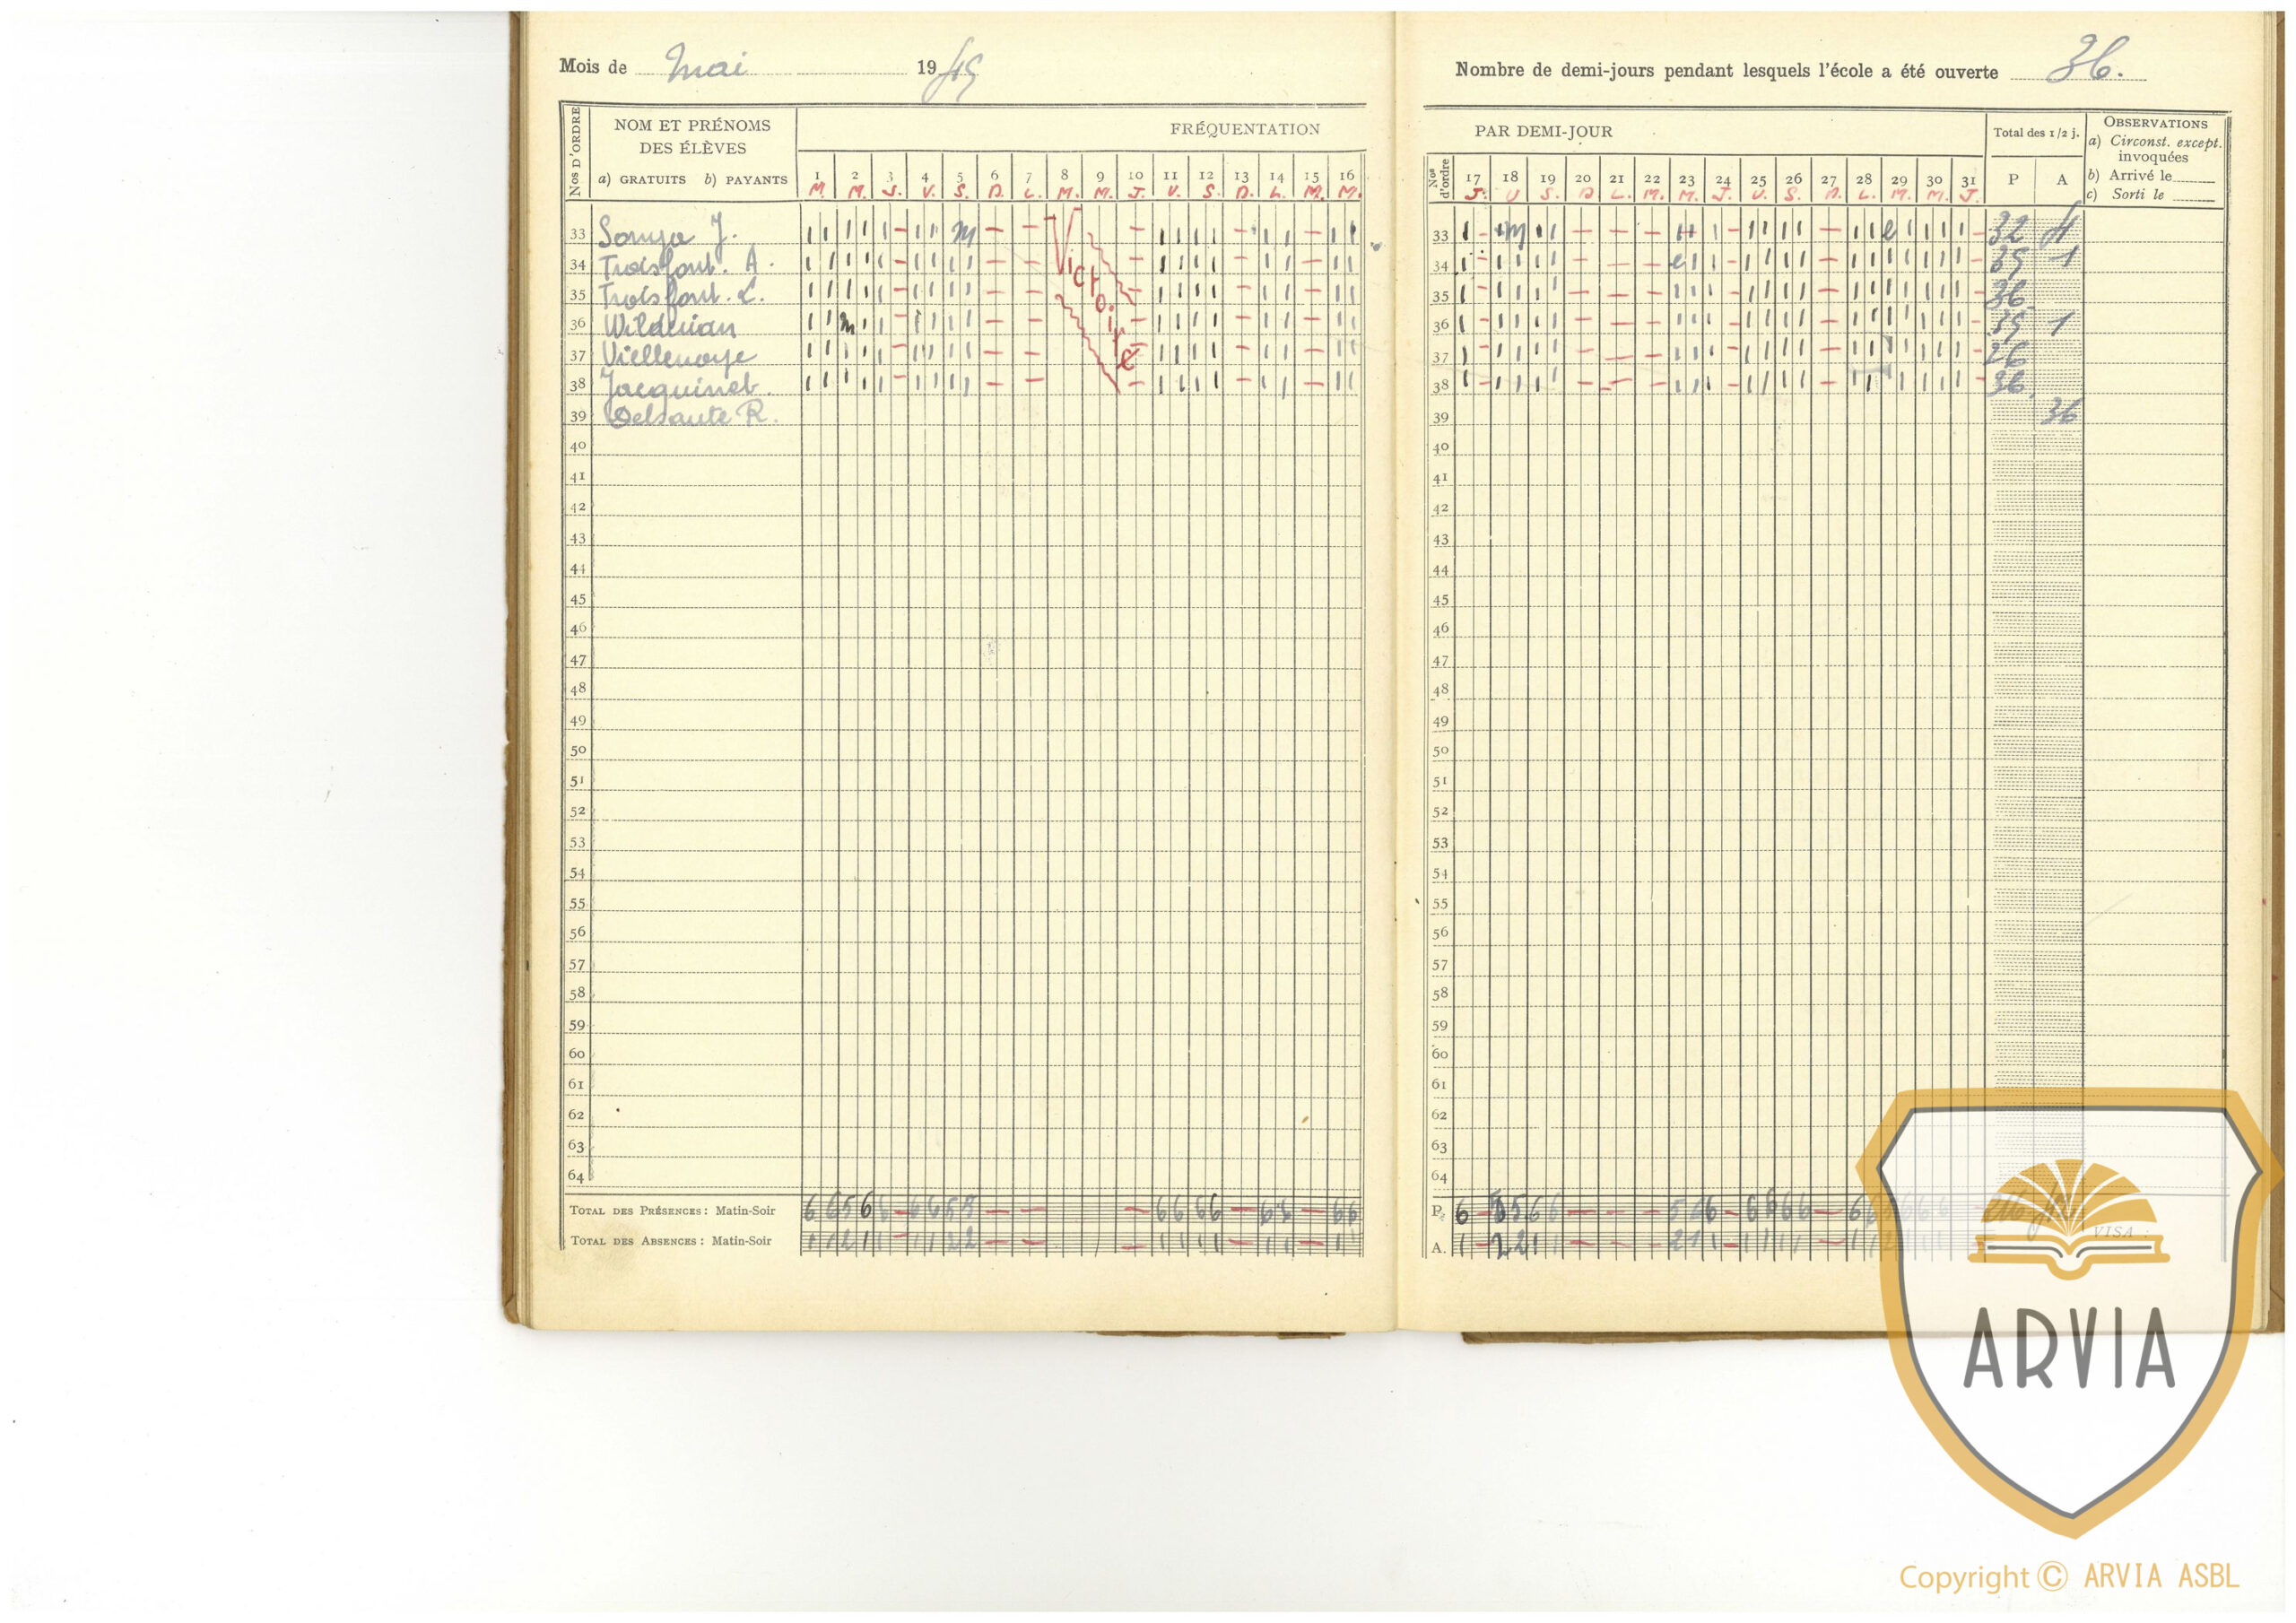 Mois de Mai 1945
Nombre de demi-jours pendant lesquels l'école a été ouverte 36.
Nos D'ORDRE
NOM ET PRÉNOMS
DES ÉLÈVES
a) GRATUITS b) PAYANTS
FRÉQUENTATION
1 2 3 4 5 6 7 8 9 10 11 12 13 14 15 16
M. M. J. V. S. D. L. M. M. J. V. S. D. L. M. M.
PAR DEMI-JOUR
Nos d'ordre
17 18 19 20 21 22 23 24 25 26 27 28 29 30 31
J. V S. D L. M. M. J. V. S. D. L. M. M. J.
Total des 1/2 j.
P A
OBSERVATIONS
a) Circonst. except.
invoquées
b) Arrivé le
c) Sorti le
Victoire
33 33 32 4
34 Troisfont. A. 34 35 1
35 Troisfont. L. 35 36
36 36 35 1
37 37
38 Jacquinet. 38 36.
39 Delsaute R. 39 36
40 40
41 41
42 42
43 43
44 44
45 45
46 46
47 47
48 48
49 49
50 50
51 51
52 52
53 53
54 54
55 55
56 56
57 57
58 58
59 59
60 60
61 61
62 62
63 63
64 64
TOTAL DES PRÉSENCES : Matin-Soir P.
TOTAL DES ABSENCES : Matin-Soir A.
VISA :
ARVIA
Copyright © ARVIA ASBL